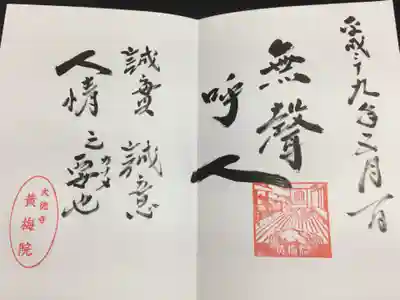 平成二十九年二月一日
無聲
呼人
黄梅院
誠實 誠意
人情之要也
カナメ
大徳寺
黄梅院